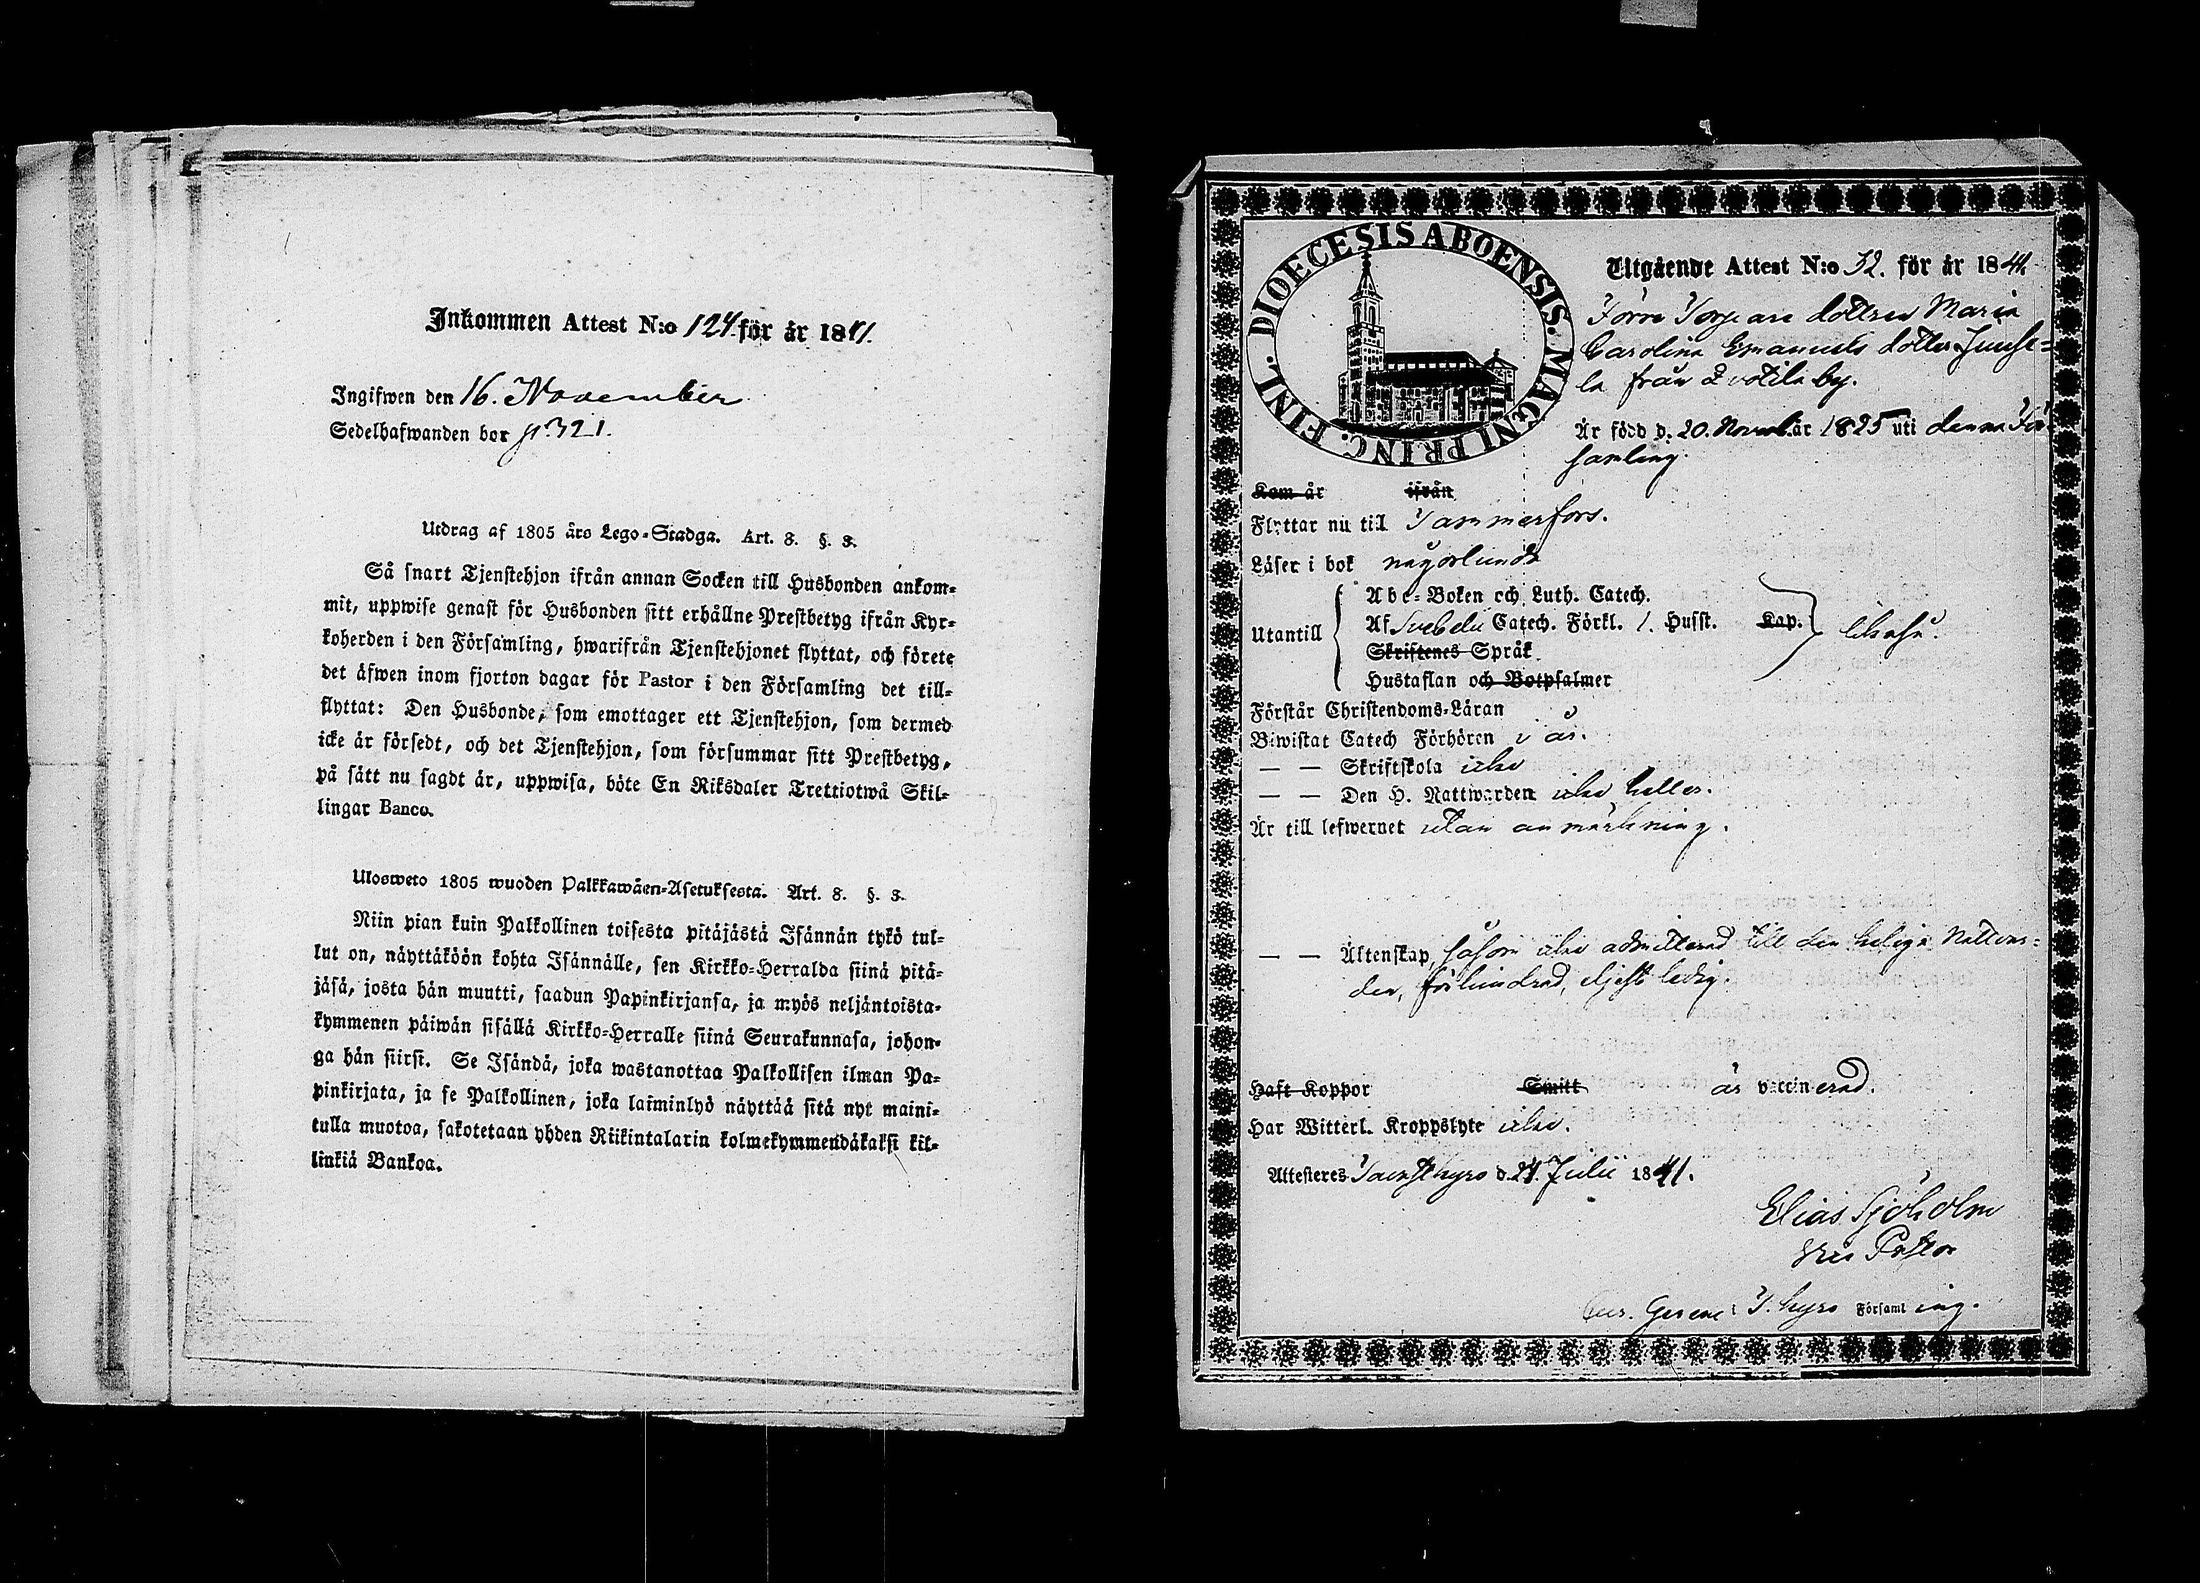 Inkommen Attest N:o 124 för år 1841.
Ingifwen den 16. November
Sedelhafwanden bor p 321.
Utdrag af 1805 års Lego-Stadga. Art. 8. §. 3.
Så snart Tjenstehjon ifrån annan Socken till Husbonden ankom-
mit, uppwise genast för Husbonden sitt erhållne Prestbetyg ifrån Kyr-
koherden i den Församling, hwarifrån Tjenstehjonet flyttat, och förete
det äfwen inom fjorton dagar för Pastor i den Församling det till-
flyttat: Den Husbonde, som emottager ett Tjenstehjon, som dermed
icke är försedt, och det Tjenstehjon, som försummar sitt Prestbetyg,
på sätt nu sagdt är, uppwisa, böte En Riksdaler Trettiotwå Skil-
lingar Banco.
Ulosweto 1805 wuoden Palkkawäen-Asetuksesta. Art. 8. §. 3.
Niin pian kuin Palkollinen toisesta pitäjästä Isännän tykö tul-
lut on, näyttäköön kohta Isännälle, sen Kirkko-Herralda siinä pitä-
jäsä, josta hän muutti, saadun Papinkirjansa, ja myös neljäntoista-
kymmenen päiwän sisällä Kirkko-Herralle siinä Seurakunnasa, johon-
ga hän siirsi. Se Isändä, joka wastanottaa Palkollisen ilman Pa-
pinkirjata, ja se Palkollinen, joka laiminlyö näyttää sitä nyt maini-
tulla muotoa, sakotetaan yhden Riikintalarin kolmekymmendäkaksi kil-
linkiä Bankoa.
DIOECESIS ABOENSIS. MAGNI PRINC. FINL.
Utgående Attest N:o 52. för år 1841.
Förre dottren Maria
Carolina Emanuels dotter
la från by.
Är född d. 20. Novemb. år 1825 uti denna För-
samling.
Kom år ifrån
Flyttar nu till Tammerfors.
Läser i bok någorlunda
Utantill
Abc-Boken och Luth. Catech.
Af Svebelii Catech. Förkl. 1. Husst. Kap.
Skriftenes Språk
Hustaflan och Botpsalmer
likaså.
Förstår Christendoms-Läran
Biwistat Catech Förhören i år.
— — Skriftskola icke
— — Den H. Nattwarden icke heller.
Är till lefwernet utan anmärkning.
— — Äktenskap, såsom icke admitterad till den heliga Nattvar-
den, förhindrad, eljest ledig.
Haft Koppor Smitt är vaccinerad.
Har Witterl. Kroppslyte icke.
Attesteres Tavastkyro d. 24. Julii 1841.
Elias Sjöholm
Vice Pastor
Cur. Gerens i T. kyro Församling.